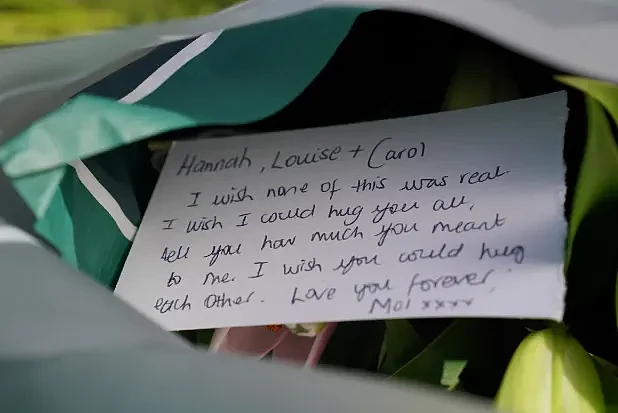 Hannah, Louise + Carol
I wish none of this was real
I wish I could hug you all,
tell you how much you meant
to me. I wish you could hug
each other. Love you forever.
Mol xxxx